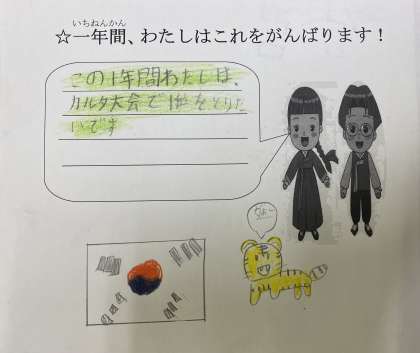 いちねんかん
☆一年間、わたしはこれをがんばります！
この1年間わたしは、
カルタ大会で1位をとりた
いです